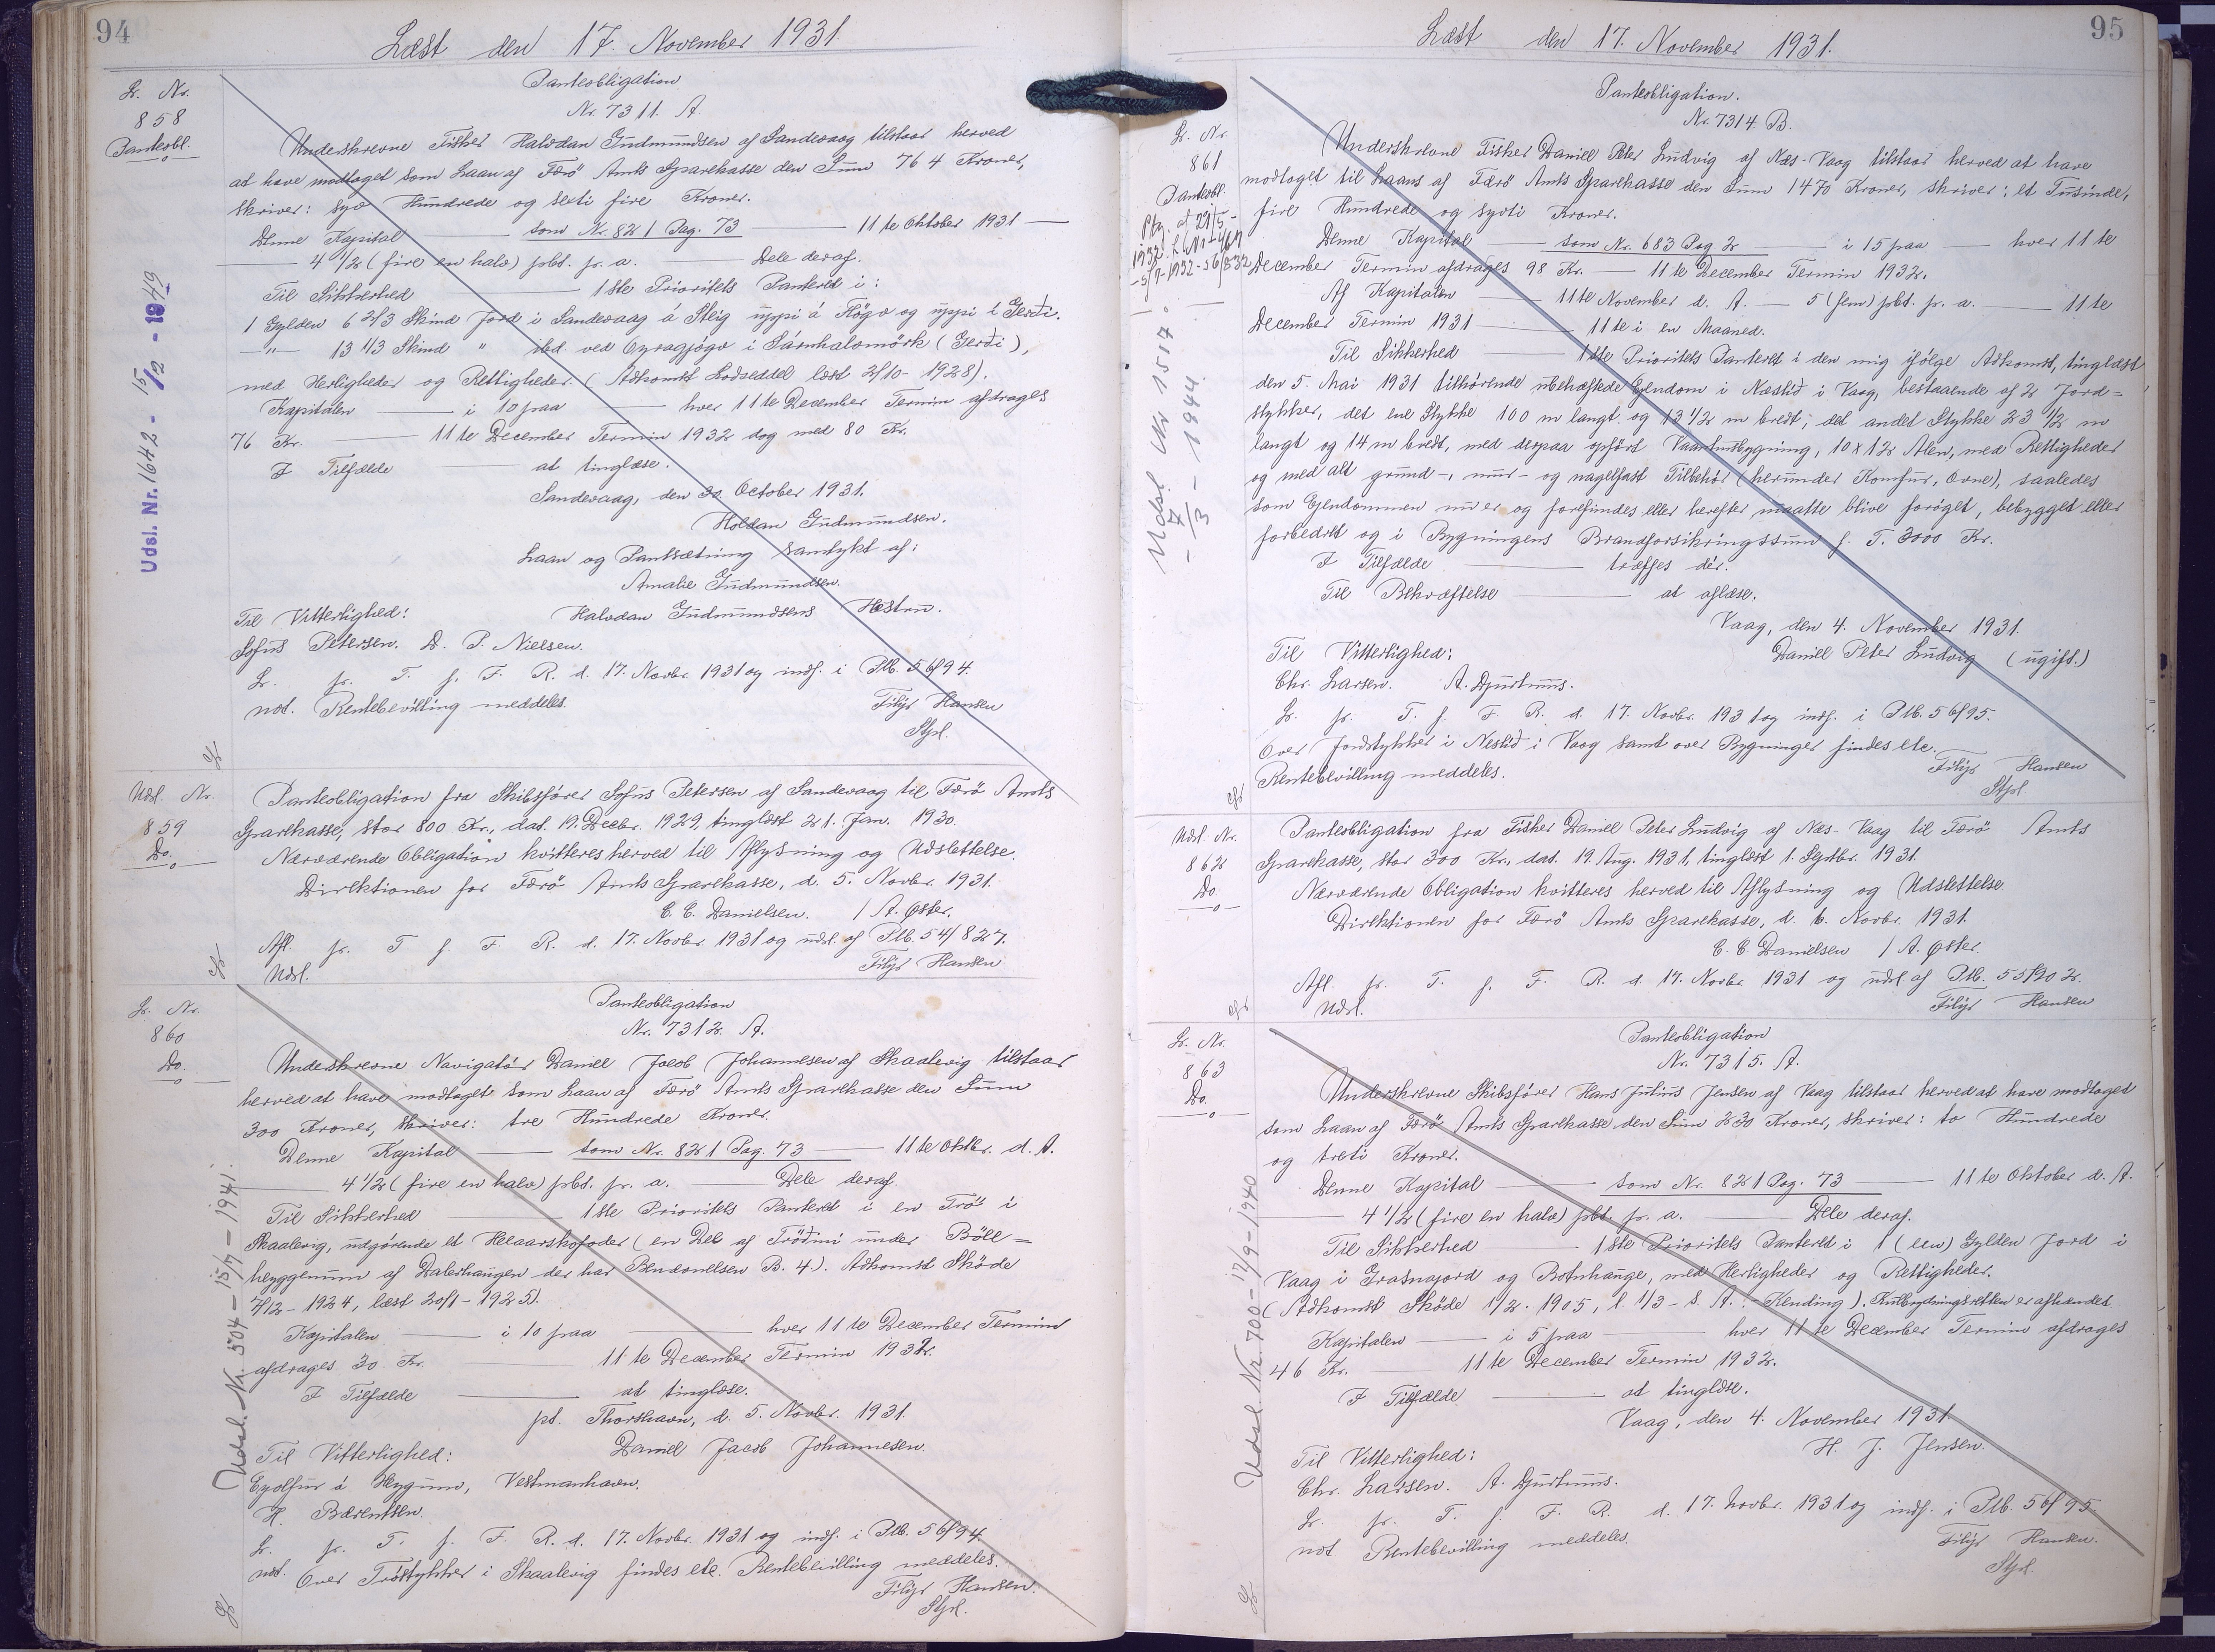 94
Læst den 17. November 1931.
L. Nr.
858
Pantobl.
Panteobligation
Nr. 7311. A.
Underskrevne Fisker Halvdan Gudmundsen af Sandevaag tilstaar herved
at have modtaget som Laan af Færö Amts Sparekasse den Sum 764 Kroner,
skriver: syv Hundrede og seksti fire Kroner.
Denne Kapital — som Nr. 821 Pag. 73 — 11te Oktober 1931 —
— 4 1/2 (fire en halv) pCt. p. a. — Dele deraf.
Til Sikkerhed — 1ste Prioritets Panteret i:
1 Gylden 6 2/3 Skind Jord i Sandevaag á Steig uppi á Högv og uppi i Gerði.
—"— 13 1/3 Skind " ibd. ved Oyragjógv i Sámhalsmörk (Gerði),
med Herligheder og Rettigheder. (Adkomst Lodseddel læst 2/10-1928).
Kapitalen — i 10 paa — hver 11te December Termin afdrages
76 Kr. — 11te December Termin 1932 dog med 80 Kr.
I Tilfælde — at tinglæse.
Sandevaag, den 30. October 1931.
Holdan Gudmundsen.
Laan og Pantsætning samtykt af:
Amalie Gudmundsen.
Til Vitterlighed: Halvdan Gudmundsens Hustru.
Sofus Petersen. D. P. Nielsen.
L. p. T. f. F. R. d. 17. Novbr. 1931 og indf. i Ptb. 56/94.
not. Rentebevilling meddeles.
Filip Hansen
Stjsl.
Udsl. Nr. 1642 - 15/2 - 1949
Udsl. Nr.
859
Do.
Panteobligation fra Skibsfører Sofus Petersen af Sandevaag til Færö Amts
Sparekasse, stor 800 Kr., dat. 19. Decbr. 1929, tinglæst 21. Jan. 1930.
Nærværende Obligation kvitteres herved til Aflysning og Udslettelse.
Direktionen for Færö Amts Sparekasse, d. 5. Novbr. 1931.
C. C. Danielsen. / A. Øster.
Afl. p. T. f. F. R. d. 17. Novbr. 1931 og udsl. af Ptb. 54/827.
Udsl.
Filip Hansen
L. Nr.
860
Do.
Panteobligation
Nr. 7312. A.
Underskrevne Navigatör Daniel Jacob Johannesen af Skaalevig tilstaar
herved at have modtaget som Laan af Færö Amts Sparekasse den Sum
300 Kroner, skriver: tre Hundrede Kroner.
Denne Kapital — som Nr. 821 Pag. 73 — 11te Oktbr. d. A.
— 4 1/2 (fire en halv) pCt. p. a. — Dele deraf.
Til Sikkerhed — 1ste Prioritets Panteret i en Trö i
Skaalevig, udgørende et Helaarskofoder (en Del af Tröðini under Böll=
heyggenum af Dalerhaugen der har Benævnelsen B. 4.). Adkomst Skøde
7/12-1924, læst 20/1-1925).
Kapitalen — i 10 paa — hver 11te December Termin
afdrages 30 Kr. 11te December Termin 1932.
I Tilfælde — at tinglæse.
pt. Thorshavn, d. 5. Novbr. 1931.
Til Vitterlighed: Daniel Jacob Johannesen.
Eyolfur á Heygum, Vestmanhavn.
H. Bærentsen.
L. p. T. f. F. R. d. 17. Novbr. 1931 og indf. i Ptb. 56/94.
not. Over Tröstykker i Skaalevig findes etc. Rentebevilling meddeles.
Filip Hansen.
Stjsl.
Udsl. Nr. 504 - 15/7 - 1941.
95
Læst den 17. November 1931.
L. Nr.
861
Panteobl.
Udsl. Nr 1517
- 7/3 - 1944.
Panteobligation.
Nr. 7314 B.
Underskrevne Fisker Daniel Peter Ludvig af Næs-Vaag tilstaar herved at have
modtaget til Laans af Færö Amts Sparekasse den Sum 1470 Kroner, skriver: et Tusinde,
fire Hundrede og syvti Kroner.
Denne Kapital — som Nr. 683 Pag. 2 — i 15 paa — hver 11te
December Termin afdrages 98 Kr. — 11te December Termin 1932.
Af Kapitalen — 11te November d. A. — 5 (fem) pCt. p. a. — 11te
December Termin 1931 — 11te i en Maaned.
Til Sikkerhed — 1ste Prioritets Panteret i den mig ifølge Adkomst, tinglæst
den 5. Mai 1931 tilhörende ubehæftede Ejendom i Neslið i Vaag, bestaaende af 2 Jord=
stykker, det ene Stykke 100 m langt og 13 1/2 m bredt, det andet Stykke 23 1/2 m
langt og 14 m bredt, med derpaa opført Vaaningsbygning, 10 x 12 Alen, med Rettigheder
og med alt grund-, mur- og nagelfast Tilbehör (herunder Komfur, Ovne), saaledes
som Ejendommen nu er og forefindes eller herefter maatte blive forøget, bebygget eller
forbedret og i Bygningens Brandforsikringssum f. T. 3000 Kr.
I Tilfælde — træffes dér.
Til Bekræftelse — at aflæse.
Vaag, den 4. November 1931.
Til Vitterlighed: Daniel Peter Ludvig (ugift.)
Chr. Larsen. A. Djurhuus.
L. p. T. f. F. R. d. 17. Novbr. 1931 og indf. i Ptb. 56/95.
Over Jordstykker i Neslið i Vaag samt over Bygninger findes etc.
Rentebevilling meddeles.
Filip Hansen
Stjsl
Udsl. Nr.
862
Do.
Panteobligation fra Fisker Daniel Peter Ludvig af Næs-Vaag til Færö Amts
Sparekasse, stor 300 Kr., dat. 19. Aug. 1931, tinglæst 1. Septbr. 1931.
Nærværende Obligation kvitteres herved til Aflysning og Udslettelse.
Direktionen for Færö Amts Sparekasse, d. 6. Novbr. 1931.
C. C Danielsen / A. Øster.
Afl. p. T. f. F. R. d. 17. Novbr 1931 og udsl. af Ptb. 55/902.
Udsl.
Filip Hansen
L. Nr.
863
Do.
Panteobligation
Nr. 7315. A.
Underskrevne Skibsfører Hans Julius Jensen af Vaag tilstaar herved at have modtaget
som Laan af Færö Amts Sparekasse den Sum 230 Kroner, skriver: to Hundrede
og treti Kroner.
Denne Kapital — som Nr. 821 Pag. 73 — 11te Oktober d. A.
— 4 1/2 (fire en halv) pCt. p. a. — Dele deraf.
Til Sikkerhed — 1ste Prioritets Panteret i 1 (een) Gylden Jord i
Vaag i Grasnajord og Botnhauge, med Herligheder og Rettigheder.
(Adkomst Sköde 1/2. 1905, l. 1/3 - s. A. - Kending). Kulbrydningsretten er afhændet.
Kapitalen — i 5 paa — hver 11te December Termin afdrages
46 Kr. — 11te December Termin 1932.
I Tilfælde — at tinglæse.
Vaag, den 4. November 1931.
Til Vitterlighed: H. J. Jensen.
Chr. Larsen. A. Djurhuus.
L. p. T. f. F. R. d. 17. Novbr. 1931 og indf. i Ptb. 56/95.
not Rentebevilling meddeles.
Filip Hansen.
Stjsl.
Udsl. Nr. 700 - 17/9 - 1940